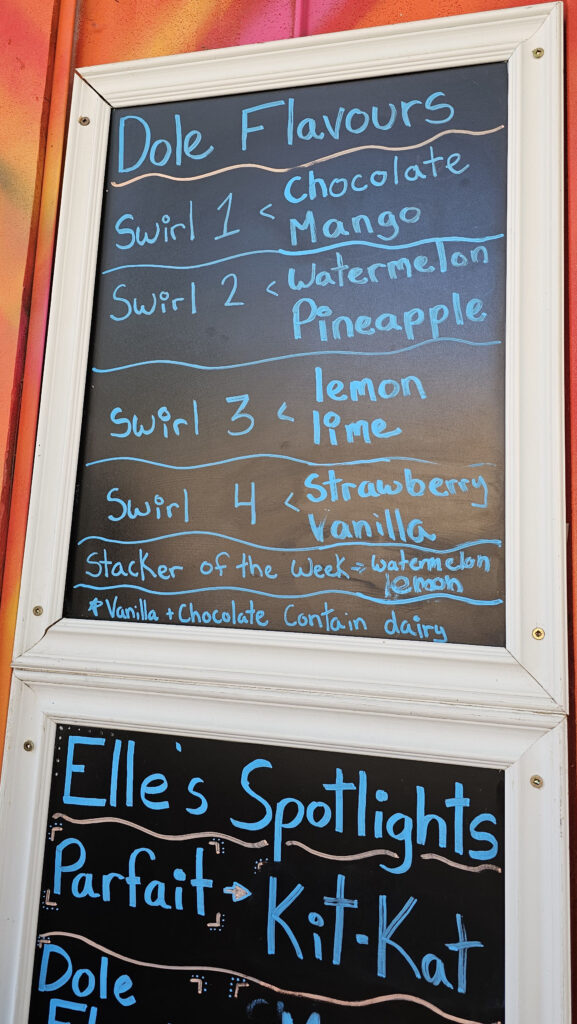 Dole Flavours
Swirl 1 < Chocolate
Mango
Swirl 2 < Watermelon
Pineapple
Swirl 3 < lemon
lime
Swirl 4 < Strawberry
Vanilla
Stacker of the Week → watermelon
lemon
*Vanilla + Chocolate Contain dairy
Elle's Spotlights
Parfait → Kit-Kat
Dole